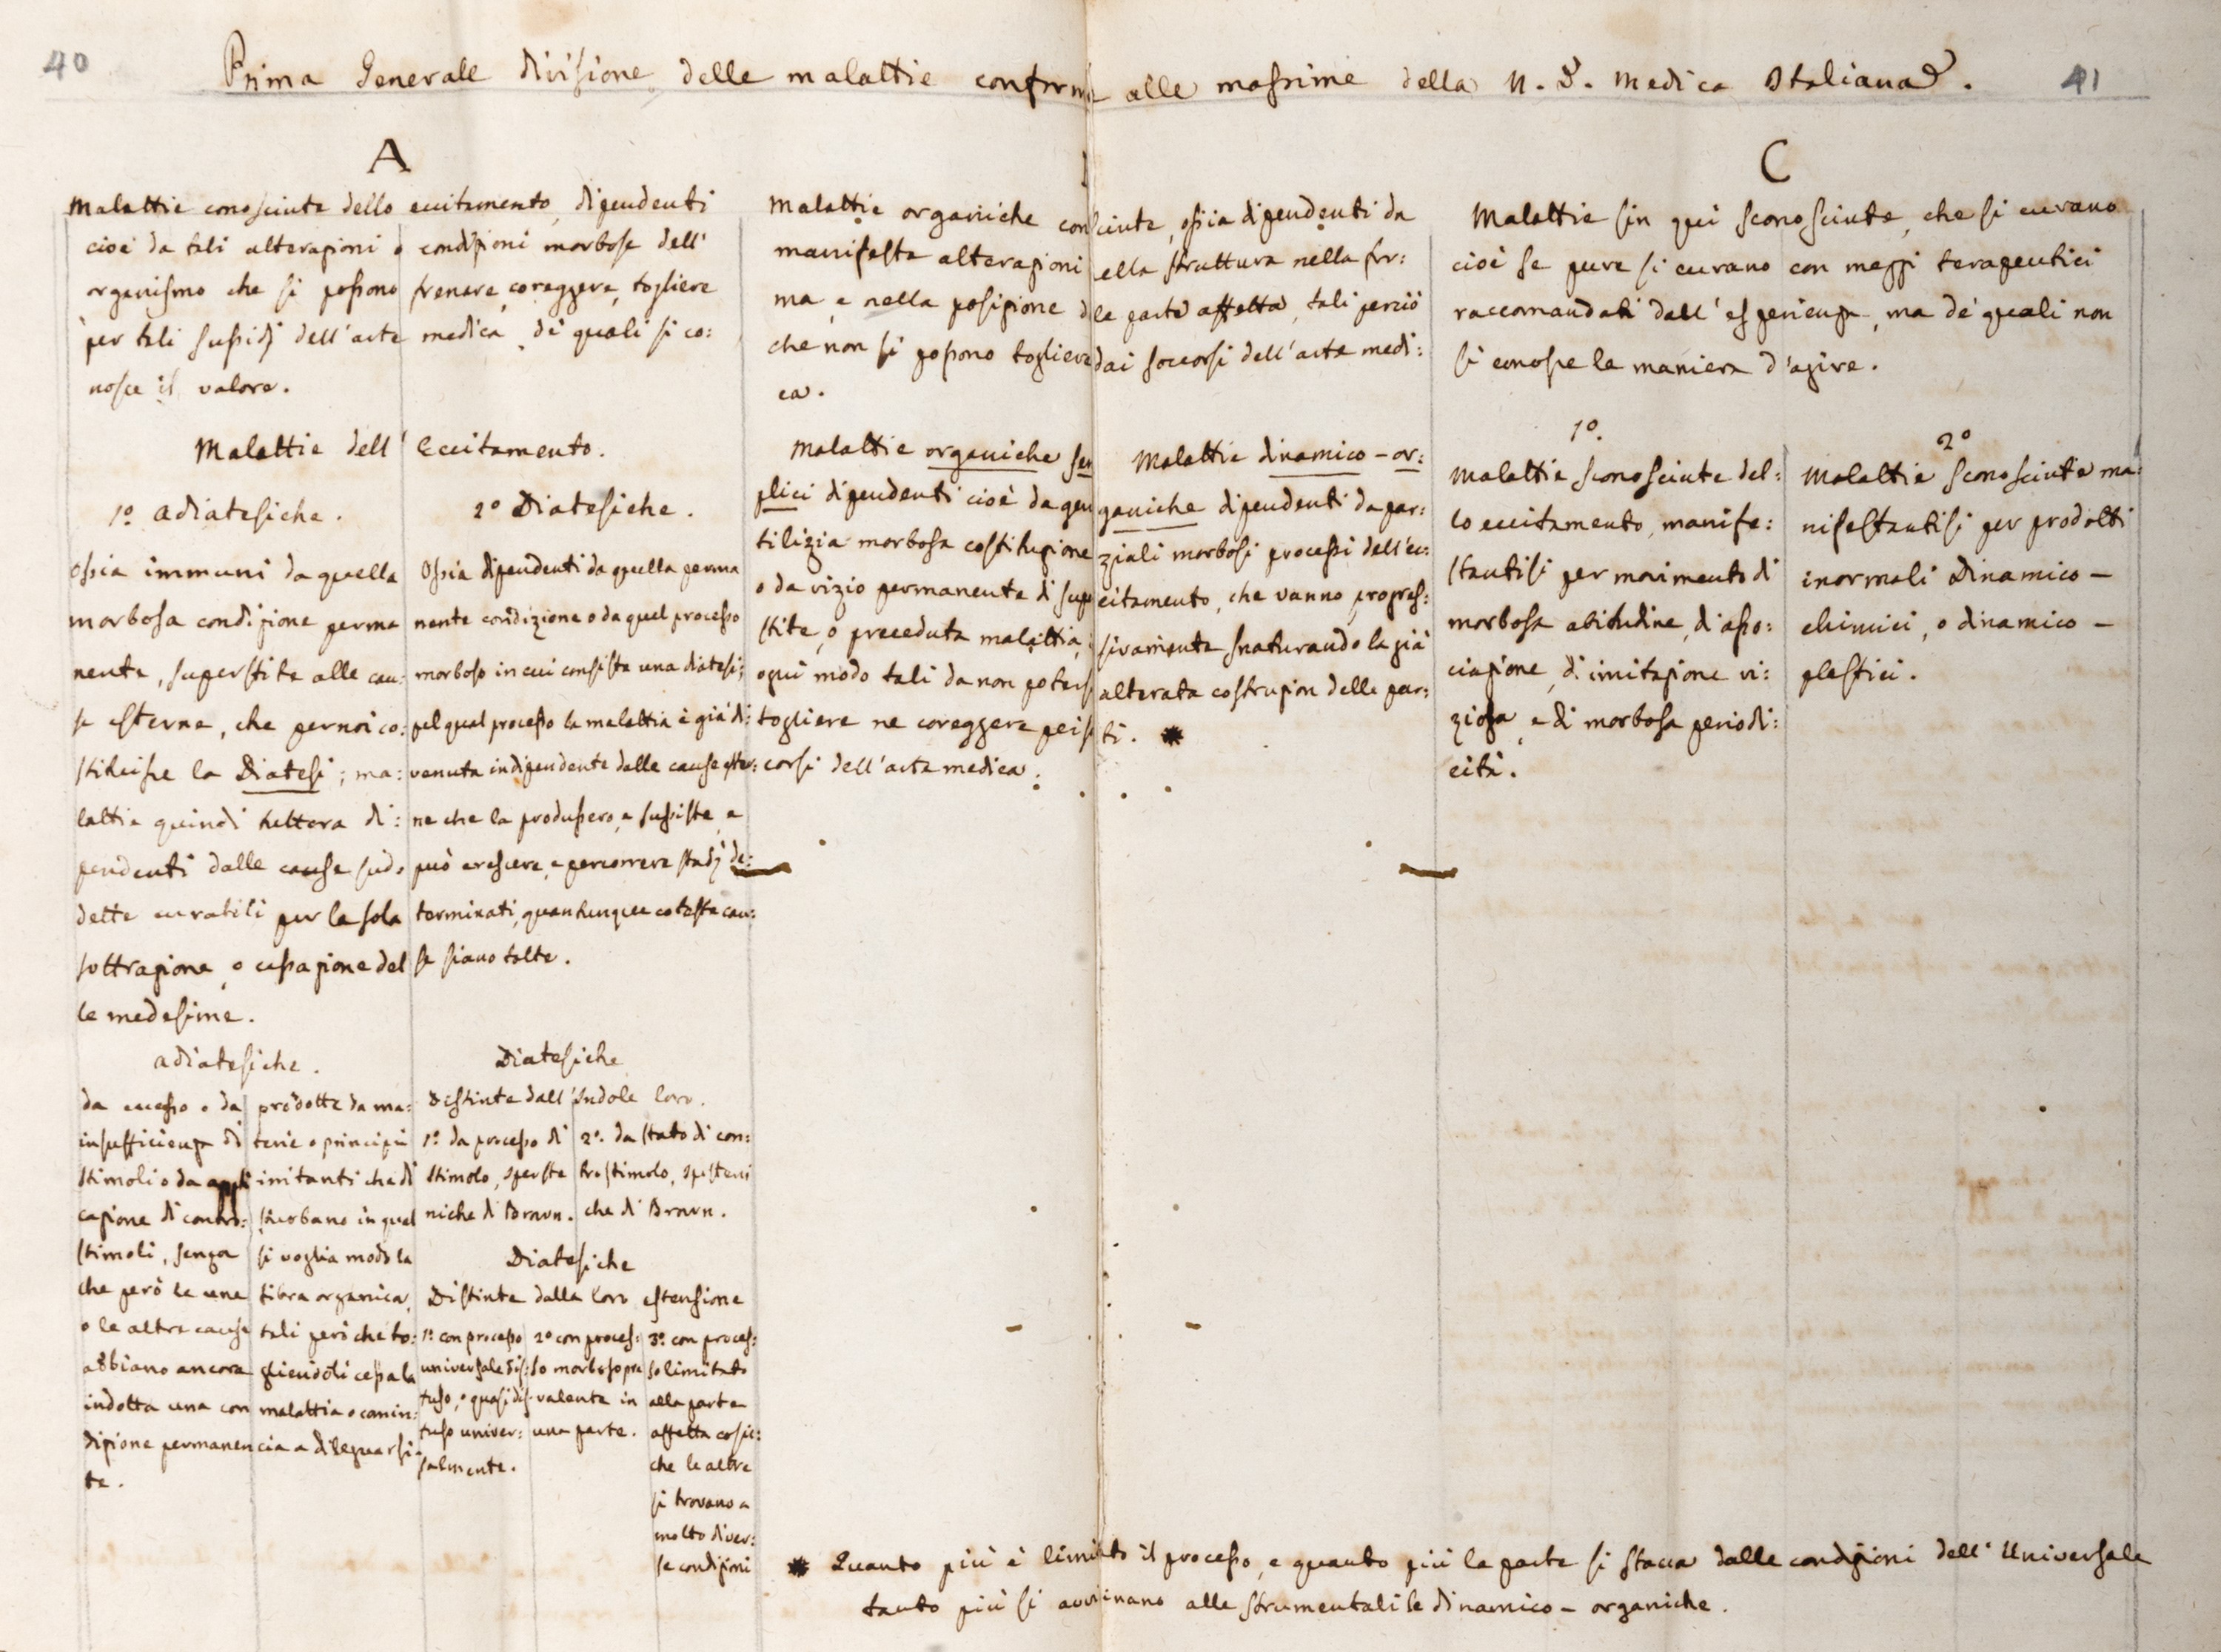 40
Prima Generale divisione delle malattie conforme alle massime della N. D. Medica Italiana.
41
A
Malattie conosciute dello eccitamento, dipendenti
cioè da tali alterazioni o condizioni morbose dell'
organismo che si possono frenare, coreggere, togliere
per tali sussidj dell'arte medica, di quali si co:
nosce il valore.
Malattie dell' Eccitamento.
1.o adiatesiche.
Ossia immuni da quella
morbosa condizione perma
nente, superstite alle cau:
se esterne, che per noi co:
stituisce la Diatesi; ma:
lattie quindi tuttora di:
pendenti dalle cause sud.
dette curabili per la sola
sottrazione, o cessazione del
le medesime.
2.o Diatesiche.
Ossia dipendenti da quella perma
nente condizione o da quel processo
morboso in cui consiste una diatesi;
pel qual processo la malattia è già di:
venuta indipendente dalle cause ester:
ne che la produssero, e sussiste, e
può crescere, e percorrere stadj de:
terminati, quantunque coteste cau:
se siano tolte.
adiatesiche.
da eccesso o da
insufficienza di
stimoli o da appli
cazione di contro:
stimoli, senza
che però le une
o le altre cause
abbiano ancora
indotta una con
dizione permanen
te.
prodotte da ma:
terie o principii
irritanti che di
sturbano in qual
si voglia modo la
fibra organica,
tali però che to:
gliendoli cessa la
malattia o comin:
cia a dileguarsi.
Diatesiche
Distinte dall'indole loro.
1.o da processo di
stimolo, iperste
niche di Brown.
2.o da stato di con:
trostimolo, iposteni
che di Brown.
Diatesiche
Distinte dalla loro estensione
1.o con processo
universale dif:
fuso, o quasi dif
fuso univer:
salmente.
2.o con proces:
so morboso pre
valente in
una parte.
3.o con proces:
so limitato
alla parte
affetta cosic:
che le altre
si trovano a
molto diver:
se condizioni
Malattie organiche conosciute, ossia dipendenti da
manifeste alterazioni della struttura nella for:
ma, e nella posizione delle parte affetta, tali perciò
che non si possono togliere dai soccorsi dell'arte medi:
ca.
Malattie organiche sem
plici dipendenti cioè da gen
tilizia morbosa costituzione
o da vizio permanente di supe
stite, o preceduta malattia,
ogni modo tali da non potersi
togliere ne coreggere pei so
corsi dell'arte medica.
Malattie dinamico - or:
ganiche dipendenti da par:
ziali morbosi processi dell'ec:
citamento, che vanno progres:
sivamente snaturando la già
alterata costruzion delle par:
ti. *
C
Malattie sin qui sconosciute, che si curano
cioè se pure si curano con mezzi terapeutici
raccomandati dall'esperienza, ma de' quali non
si conosce la maniera d'agire.
1.o
Malattie sconosciute del:
lo eccitamento, manife:
stantisi per movimento di
morbosa abitudine, di asso:
ciazione, di imitazione vi:
ziosa, e di morbosa periodi:
cità.
2.o
Malattie sconosciute ma:
nifestantisi per prodotti
inormali Dinamico -
chimici, o dinamico -
plastici.
* Quanto più è limitato il processo, e quanto più la parte si stacca dalle condizioni dell'Universale
tanto più si avvicinano alle strumentali le dinamico - organiche.